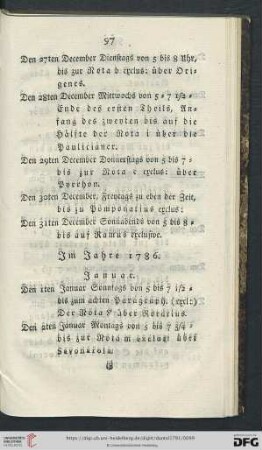 97
Den 27ten December Dienstags von 5 bis 8 Uhr,
bis zur Nota b exclus: über Ori-
genes.
Den 28ten December Mittwochs von 5 - 7 1/2 -
Ende des ersten Theils, An-
fang des zweyten bis auf die
Hälfte der Nota i über die
Paulicianer.
Den 29ten December Donnerstags von 5 bis 7 -
bis zur Nota c exclus: über
Pyrrhon.
Den 30ten December, Freytags zu eben der Zeit,
bis zu Pomponatius exclus:
Den 31ten December Sonnabends von 5 bis 8 -
bis auf Ramus exclusive.
Im Jahre 1786.
Januar.
Den 1ten Januar Sonntags von 5 bis 7 1/2 -
bis zum achten Paragraph. (excl:)
Der Nota über
Den 2ten Januar Montags von 5 bis 7 3/4 -
bis zur Nota m exclus: über
Savonarola.
G
UNIVERSITÄTS-BIBLIOTHEK HEIDELBERG
Gefördert durch die
DFG